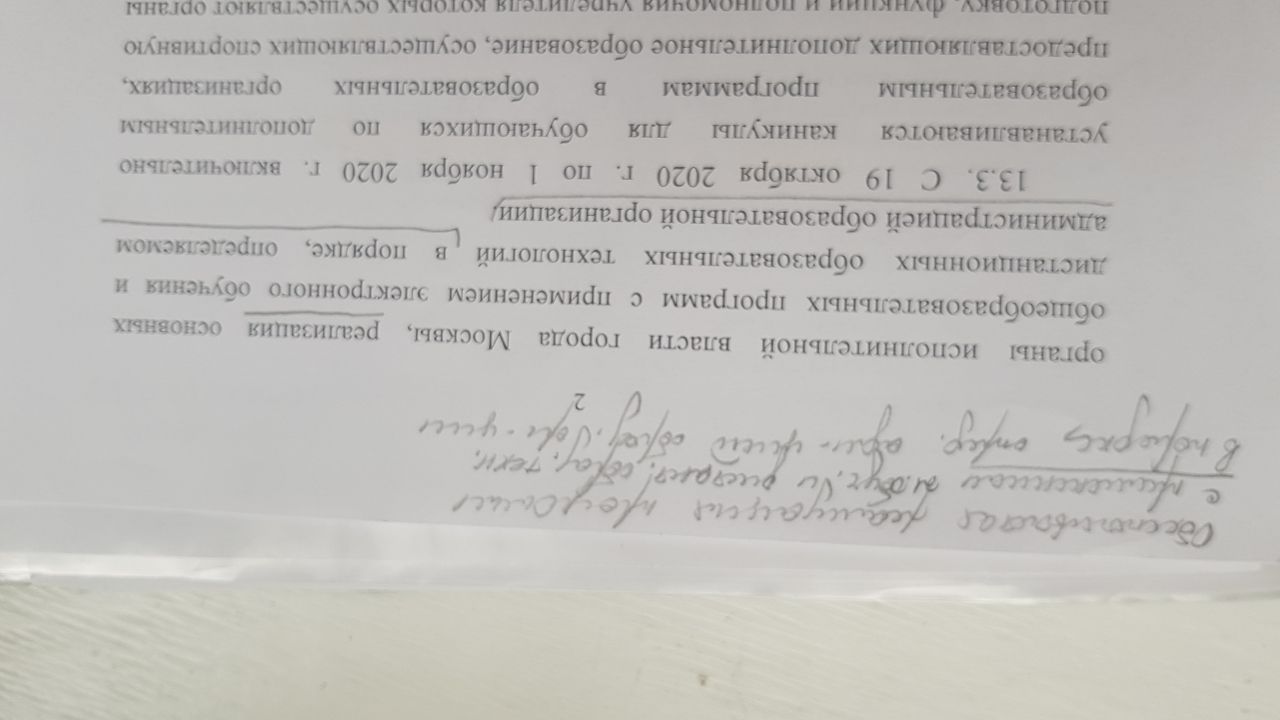 Обеспечивается реализация программы
с применением эл. обуч. и дистанц. образ. техн.
В порядке, опред. адм-цией образ. орг-ции
2
органы исполнительной власти города Москвы, реализация основных
общеобразовательных программ с применением электронного обучения и
дистанционных образовательных технологий в порядке, определяемом
администрацией образовательной организации
13.3. С 19 октября 2020 г. по 1 ноября 2020 г. включительно
устанавливаются каникулы для обучающихся по дополнительным
образовательным программам в образовательных организациях,
предоставляющих дополнительное образование, осуществляющих спортивную
подготовку, функции и полномочия учредителя которых осуществляют органы